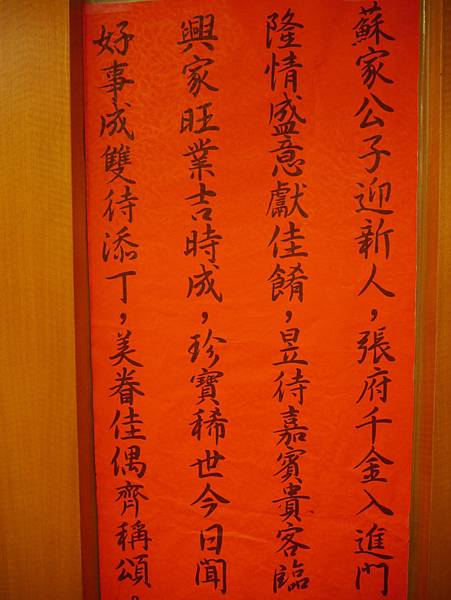 蘇家公子迎新人，張府千金入進門
隆情盛意獻佳餚，昱待嘉賓貴客臨
興家旺業吉時成，珍寶稀世今日聞
好事成雙待添丁，美眷佳偶齊稱頌。